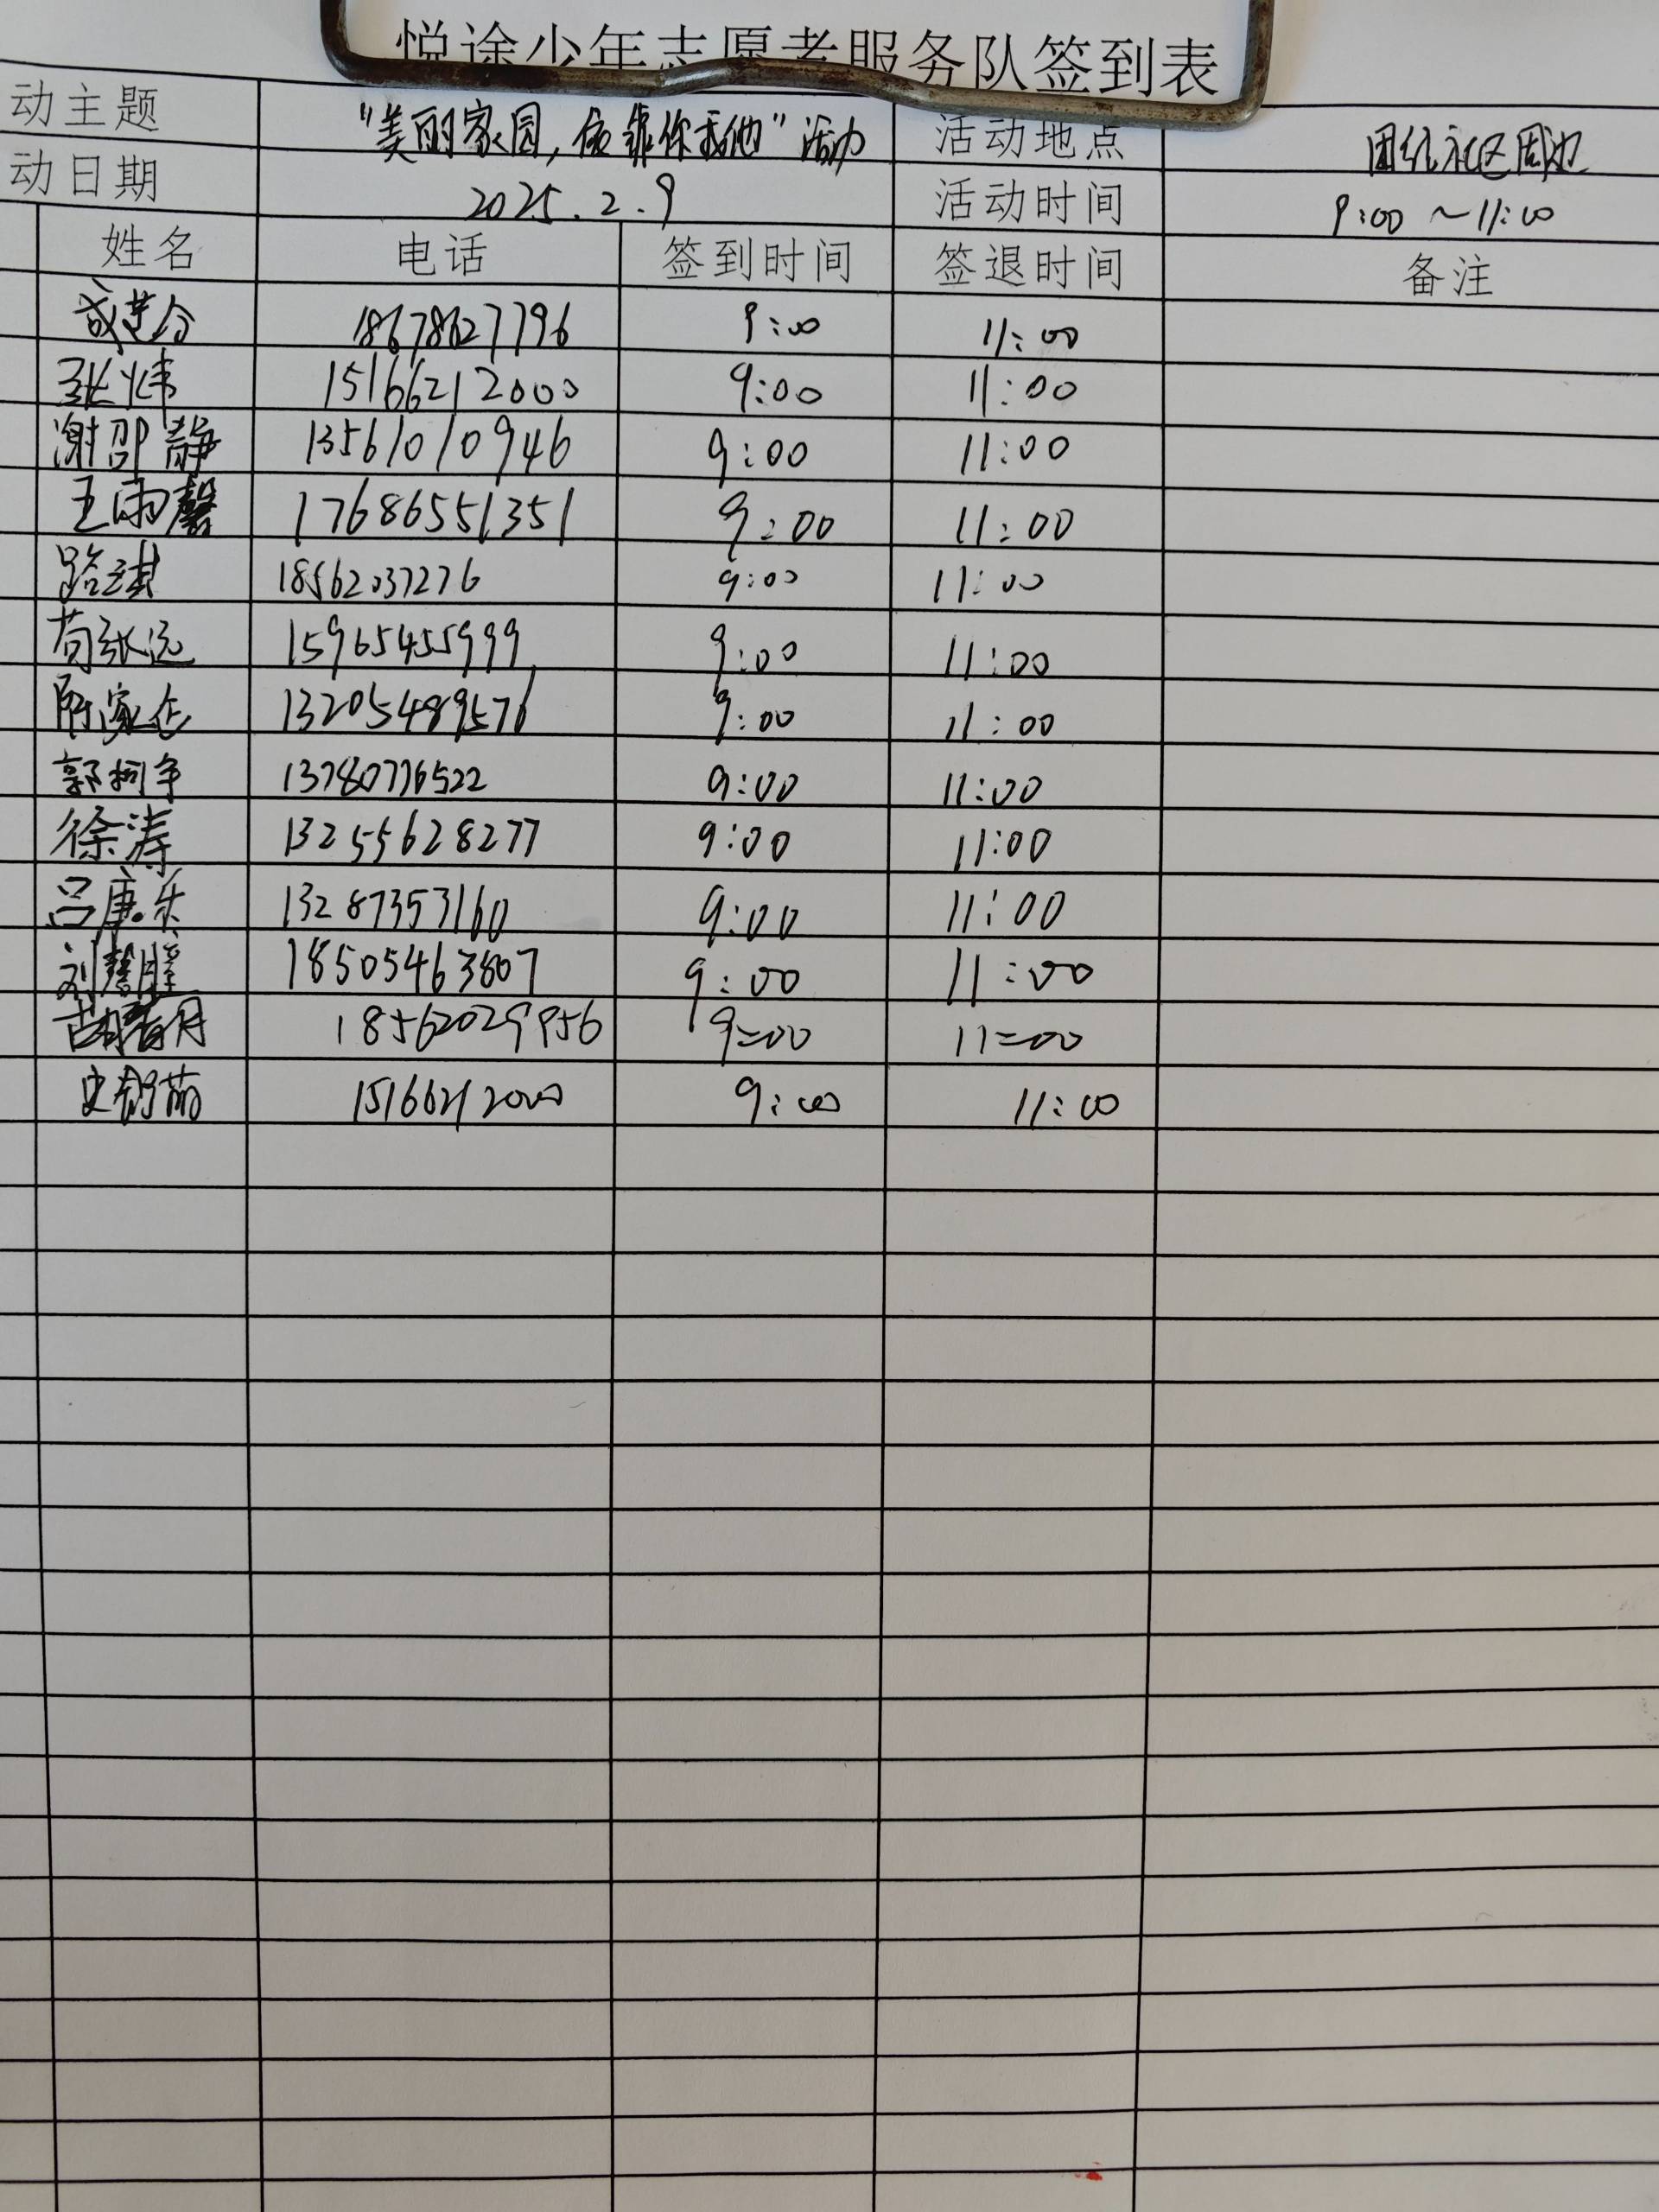 悦途少年志愿者服务队签到表
动主题 "美丽家园,依靠你我他"活动 活动地点 团结社区周边
动日期 2025.2.9 活动时间 9:00~11:00
姓名 电话 签到时间 签退时间 备注
18678627796 9:00 11:00
张炜 15166212000 9:00 11:00
谢邵静 13561010946 9:00 11:00
王雨馨 17686551351 9:00 11:00
路琪 18562037276 9:00 11:00
苟张远 15965455999 9:00 11:00
13205489576 9:00 11:00
郭柯争 13780776522 9:00 11:00
徐涛 13255628277 9:00 11:00
吕康乐 13287353160 9:00 11:00
刘慧滕 18505463807 9:00 11:00
18562029956 9=00 11=00
史 萌 15166212000 9:00 11:00